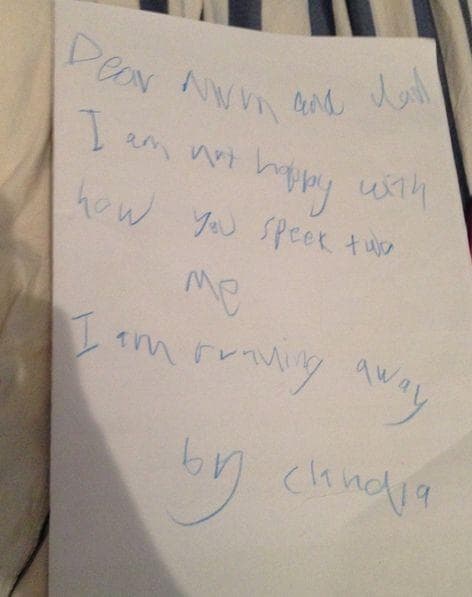 Dear Mum and dad
I am not happy with
how you speek two
me
I am running away
by claudia